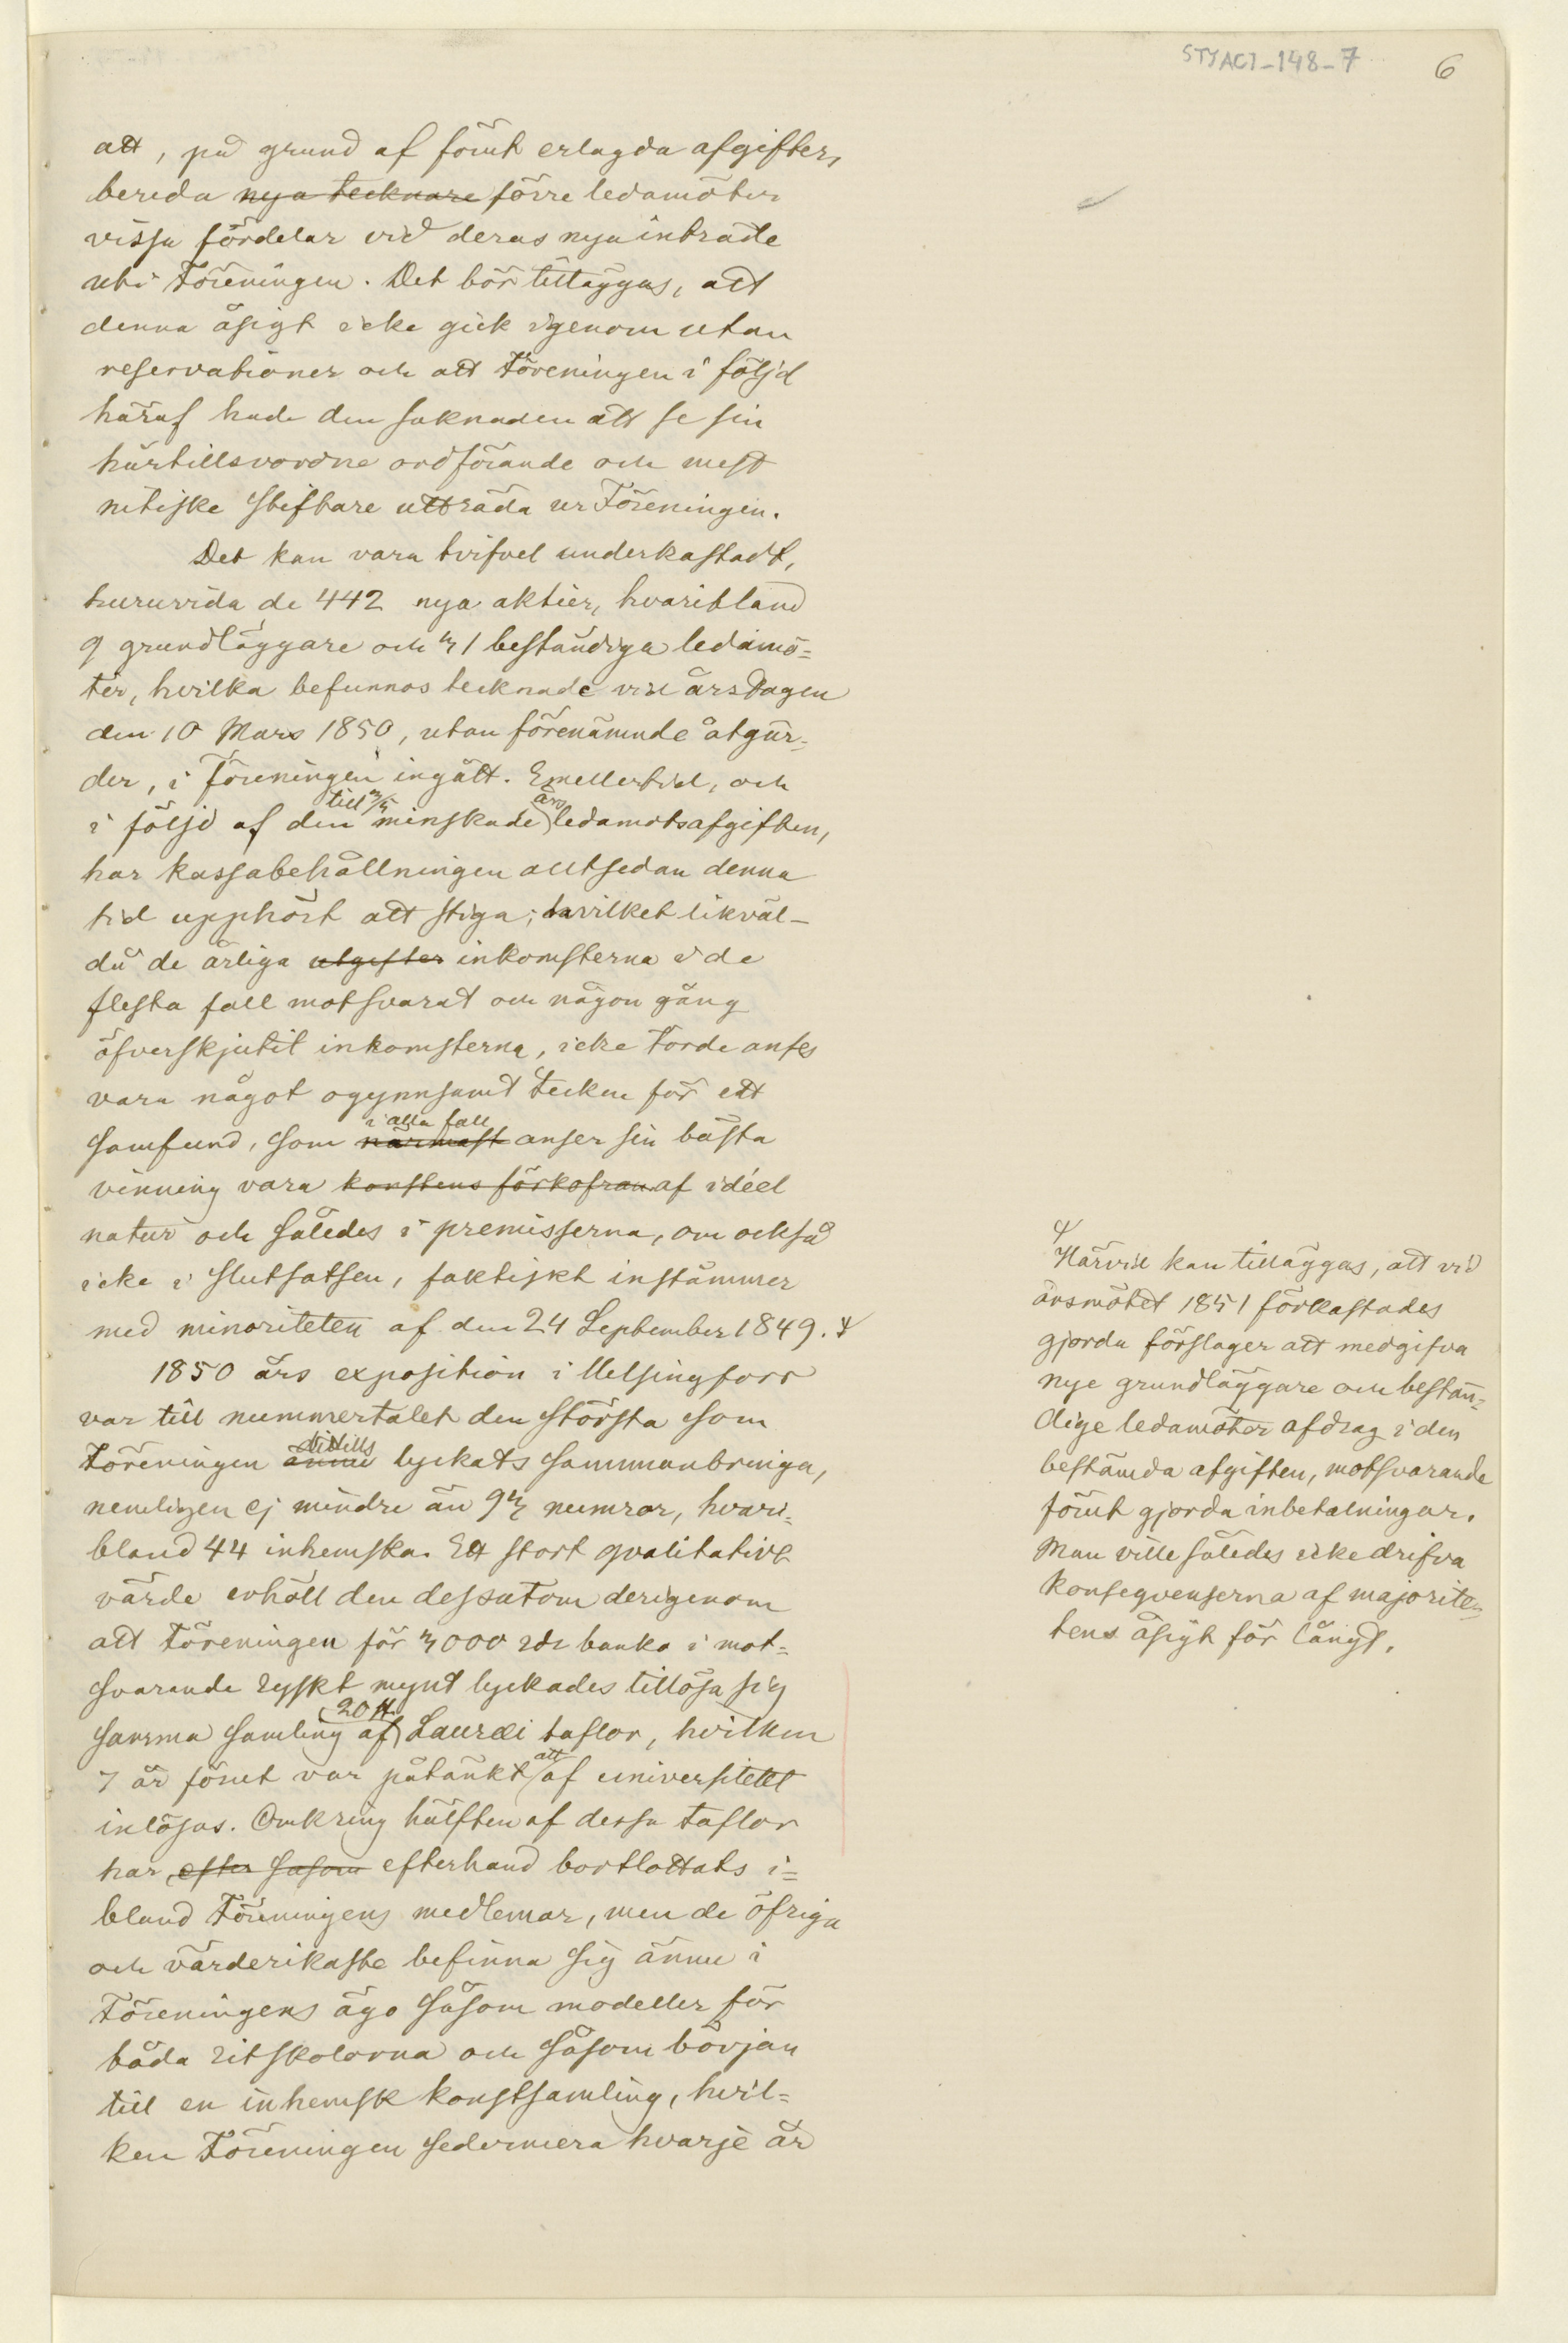 STYACI-148-7
6
att, på grund af förut erlagda afgifter,
bereda nya tecknare förre ledamöter
vissa fördelar vid deras nya inträde
uti Föreningen. Det bör tilläggas, att
denna åsigt icke gick igenom utan
reservationer och att Föreningen i följd
häraf hade den saknaden att se sin
härtillsvordne ordförande och mest
nitiske stiftare utträda ur Föreningen.
Det kan vara tvifvel underkastadt,
huruvida de 442 nya aktier, hvaribland
9 grundläggare och 31 beständiga ledamö=
ter, hvilka befunnos tecknade vid årsdagen
den 10 Mars 1850, utan förenämnde åtgär=
der, i Föreningen ingått. Emellertid, och
i följd af den till 3/5 minskade års ledamotsafgiften,
har kassabehållningen alltsedan denna
tid upphört att stiga; hvilket likväl –
då de årliga utgifter inkomsterna i de
flesta fall motsvarat och någon gång
öfverskjutit inkomsterna, icke torde anses
vara något ogynnsamt tecken för ett
samfund, som närmast i alla fall anser sin bästa
vinning vara konstens förkofran af idéel
natur och således i premisserna, om också
icke i slutsatsen, faktiskt instämmer
med minoriteten af den 24 September 1849. ⌖
1850 års exposition i Helsingfors
var till nummertalet den största som
Föreningen ännu dittills lyckats sammanbringa,
nemligen ej mindre än 93 numror, hvari=
bland 44 inhemska. Ett stort qvalitatift
värde erhöll den dessutom derigenom
att Föreningen för 3000 rdr banko i mot=
svarande ryskt mynt lyckades tillösa sig
samma samling af 20 st. Lauræi taflor, hvilken
7 år förut var påtänkt att af universitetet
inlösas. Omkring hälften af dessa taflor
har efter såsom efterhand bortlottats i=
bland Föreningens medlemar, men de öfriga
och värderikaste befinna sig ännu i
Föreningens ägo såsom modeller för
båda ritskolorna och såsom början
till en inhemsk konstsamling, hvil=
ken Föreningen sedermera hvarje år
⌖
Härvid kan tilläggas, att vid
årsmötet 1851 förkastades
gjorda förslager att medgifva
nye grundläggare och bestän=
dige ledamöter afdrag i den
bestämda afgiften, motsvarande
förut gjorda inbetalningar.
Man ville således icke drifva
konseqvenserna af majorite=
tens åsigt för långt.